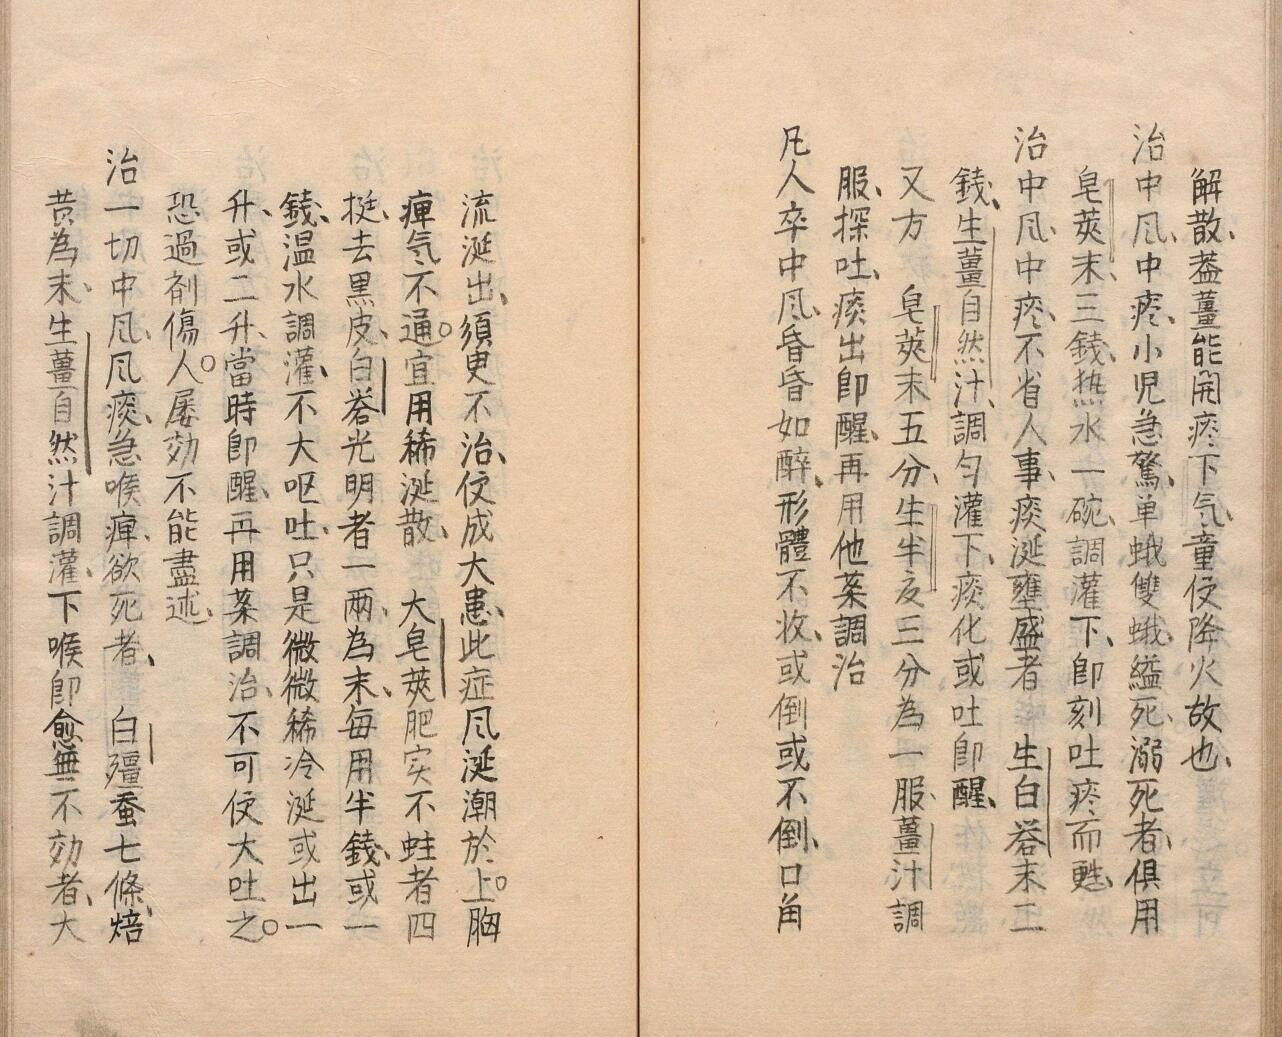 解散蓋薑能開痰下气童便降火故也
治中风中痰小児急驚单蛾雙蛾縊死溺死者俱用
皂莢末三錢热水一碗調灌下即刻吐痰而甦
治中风中痰不省人事痰涎壅盛者 生白礬末二
錢生薑自然汁調勻灌下痰化或吐即醒
又方 皂莢末五分生半夏三分為一服薑汁調
服探吐痰出即醒再用他藥調治
凡人卒中风昏昏如醉形體不收或倒或不倒口角
流涎出須更不治便成大患此症风涎潮於上胸
痺气不通宜用稀涎散 大皂莢肥实不蛀者四
挺去黑皮白礬光明者一兩為末每用半錢或一
錢温水調灌不大呕吐只是微微稀冷涎或出一
升或二升當時即醒再用藥調治不可便大吐之
恐過剤傷人屡効不能盡述
治一切中风风痰急喉痺欲死者 白殭蚕七條焙
黄為末生薑自然汁調灌下喉即愈無不効者大